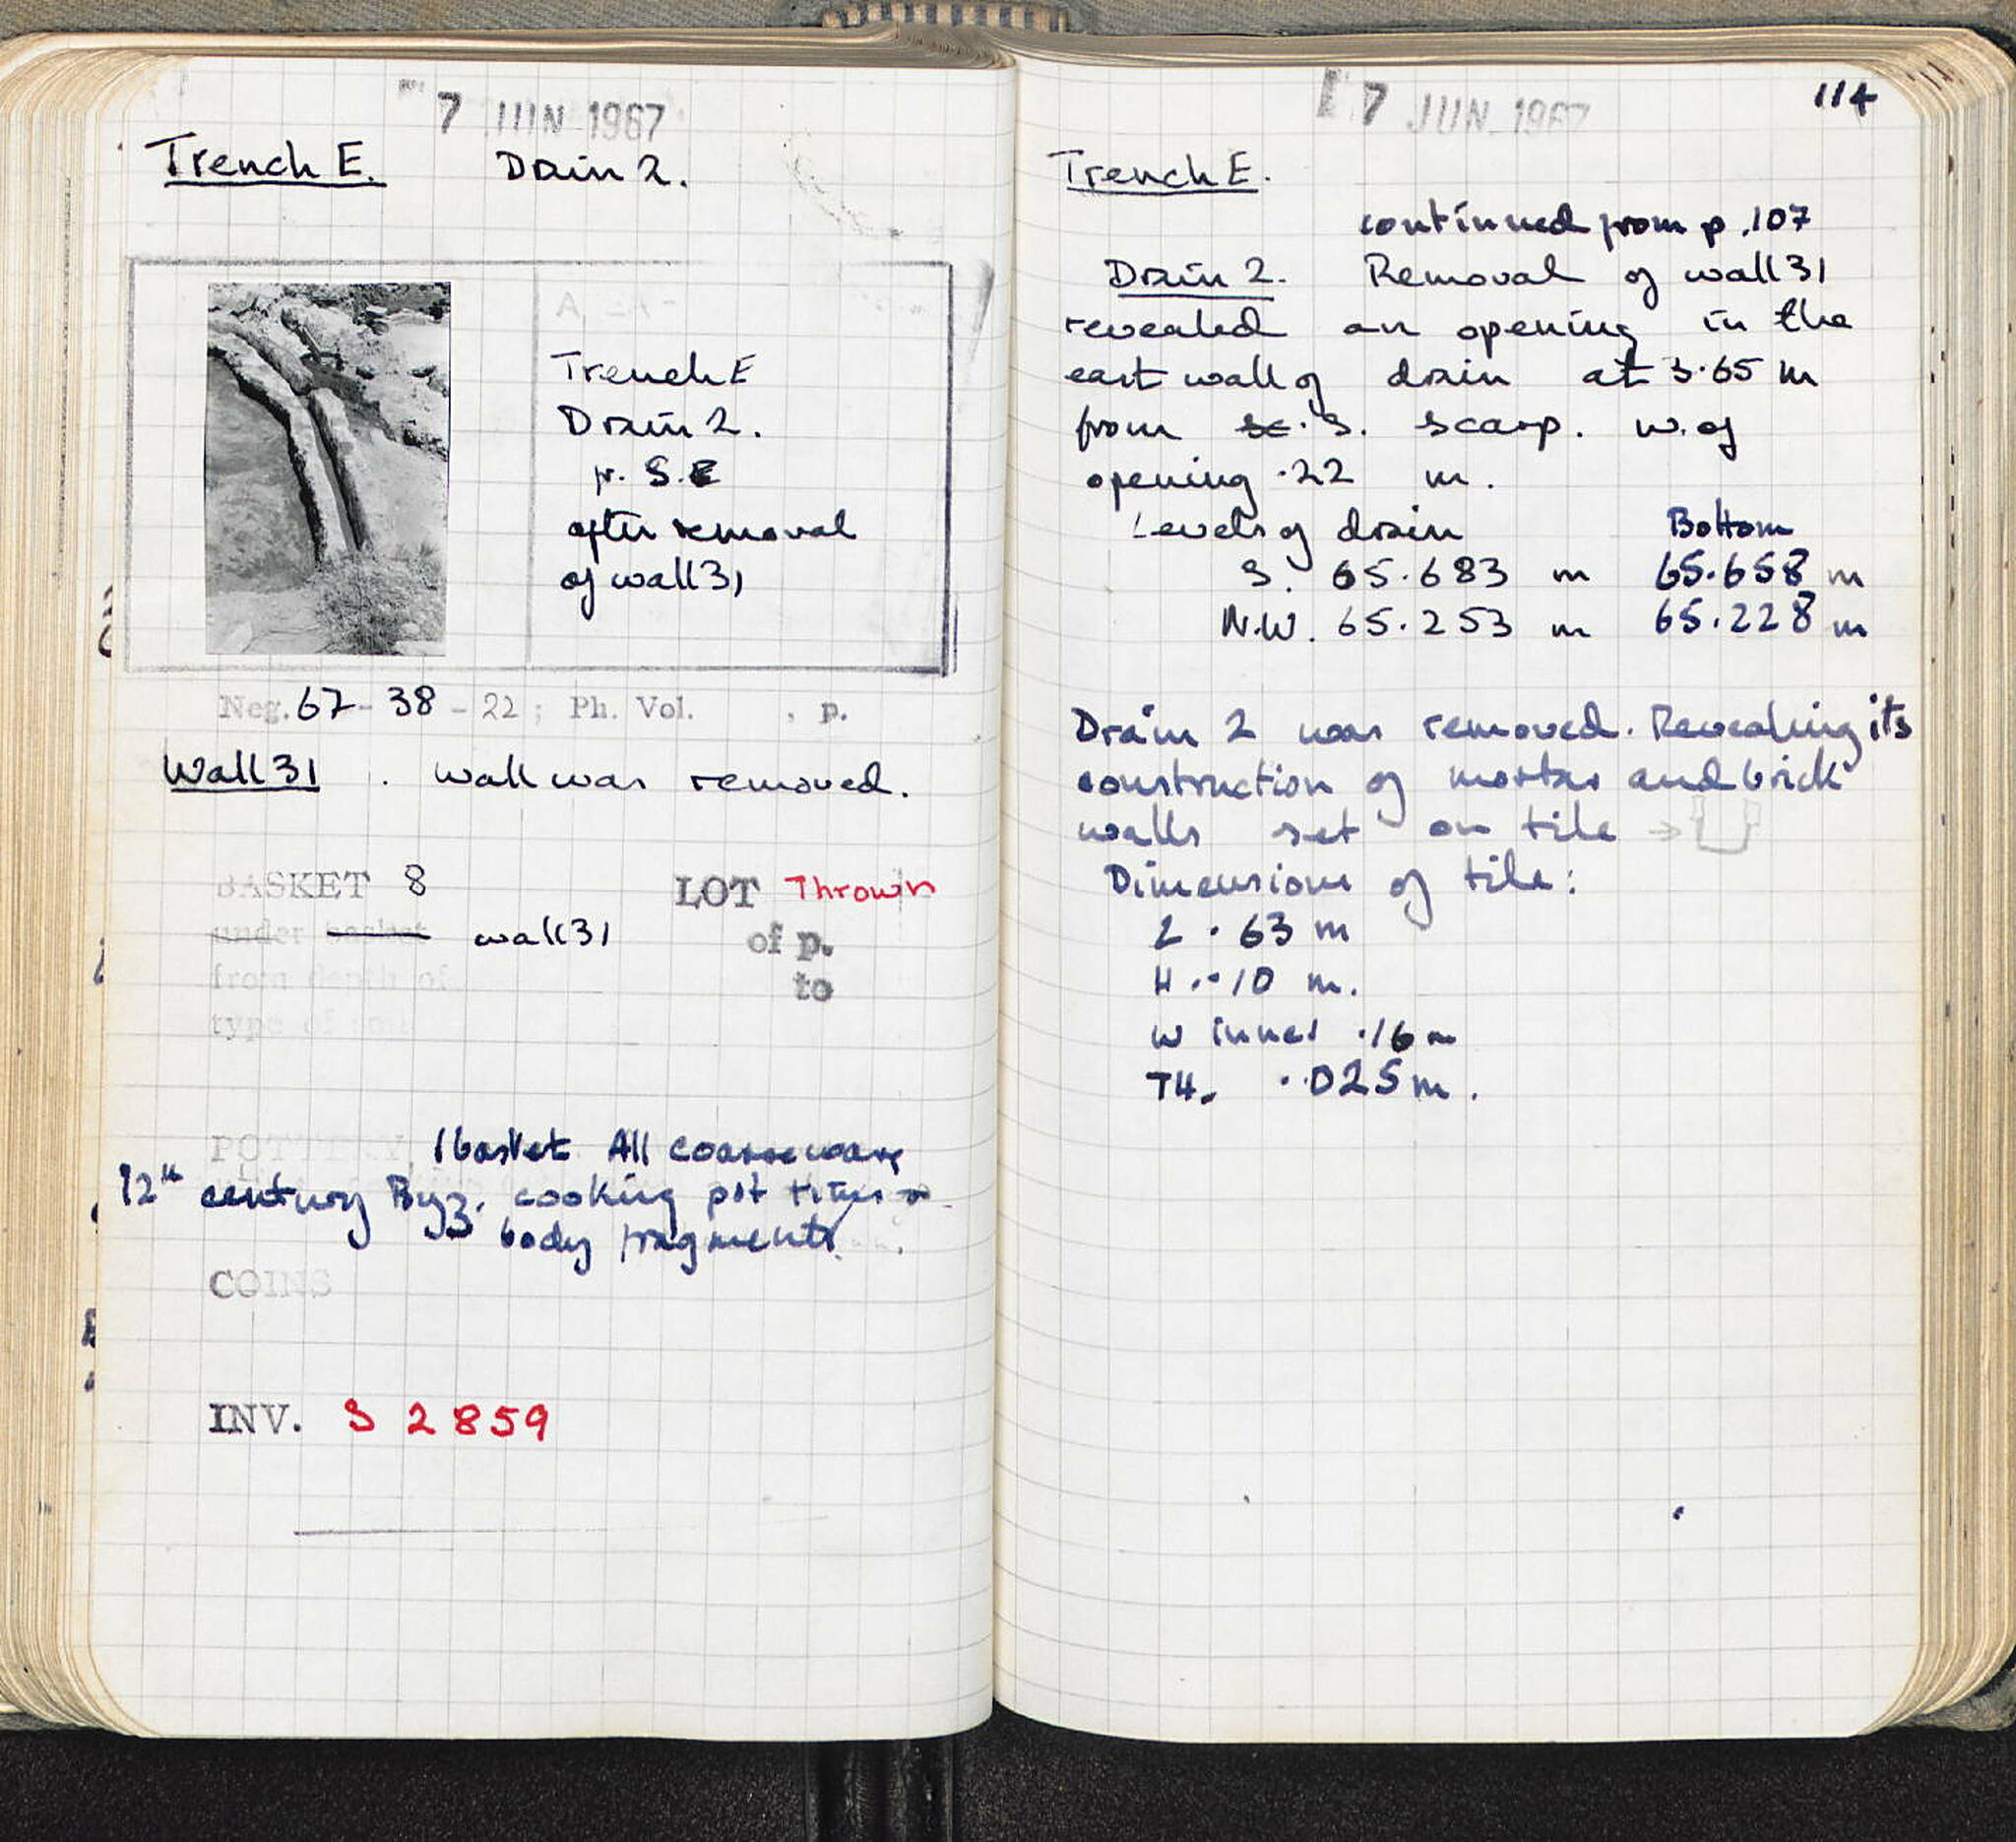 7 JUN 1967
Trench E. Drain 2.
Trench E
Drain 2.
fr. S.E
after removal
of wall 31
Neg. 67-38-22; Ph. Vol. , p.
Wall 31 . Wall was removed.
BASKET 8 LOT Thrown
under basket wall 31 of p.
from depth of to
type of soil
POTTERY 1 basket All coarse ware
12th century Byz. cooking pot rims +
body fragments.
COINS
INV. S 2859
7 JUN 1967
114
Trench E.
continued from p. 107
Drain 2. Removal of wall 31
revealed an opening in the
east wall of drain at 3.65 m
from sc. S. scarp. W. of
opening .22 m.
Levels of drain Bottom
S. 65.683 m 65.658 m
N.W. 65.253 m 65.228 m
Drain 2 was removed. Revealing its
construction of mortar and brick
walls set on tile →
Dimensions of tile:
L .63 m
H. .10 m.
W inner .16 m
TH. .025 m.